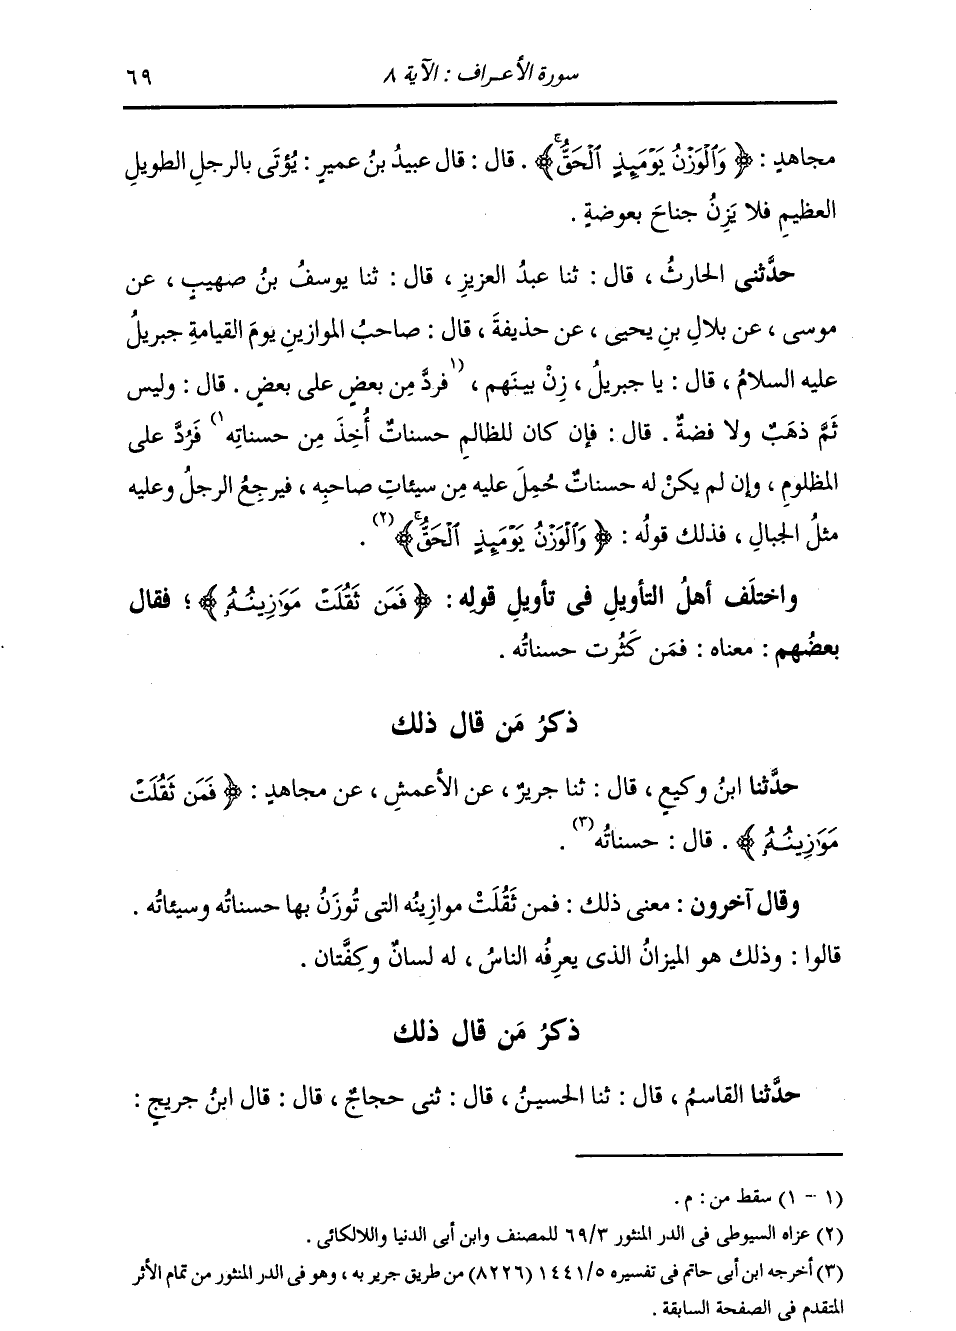 سورة الأعراف : الآية ٨ ٦٩
مجاهدٍ : ﴿ وَٱلْوَزْنُ يَوْمَئِذٍ ٱلْحَقُّۚ ﴾ . قال : قال عبيدُ بنُ عميرٍ : يُؤتَى بالرجلِ الطويلِ
العظيمِ فلا يَزِنُ جناحَ بعوضةٍ .
حدَّثنى الحارثُ ، قال : ثنا عبدُ العزيزِ ، قال : ثنا يوسفُ بنُ صهيبٍ ، عن
موسى ، عن بلالِ بنِ يحيى ، عن حذيفةَ ، قال : صاحبُ الموازينِ يومَ القيامةِ جبريلُ
عليه السلامُ ، قال : يا جبريلُ ، زِنْ بينَهم ، (١فردَّ مِن بعضٍ على بعضٍ . قال : وليس
ثَمَّ ذهَبٌ ولا فضةٌ . قال : فإن كان للظالمِ حسناتٌ أُخِذَ مِن حسناتِه١) فَرُدَّ على
المظلومِ ، وإن لم يكنْ له حسناتٌ حُمِلَ عليه مِن سيئاتِ صاحبِه ، فيرجِعُ الرجلُ وعليه
مثلُ الجبالِ ، فذلك قولُه : ﴿ وَٱلْوَزْنُ يَوْمَئِذٍ ٱلْحَقُّۚ ﴾(٢) .
واختلَف أهلُ التأويلِ فى تأويلِ قولِه : ﴿ فَمَن ثَقُلَتْ مَوَٰزِينُهُۥ ﴾ ؛ فقال
بعضُهم : معناه : فمَن كَثُرت حسناتُه .
ذكرُ مَن قال ذلك
حدَّثنا ابنُ وكيعٍ ، قال : ثنا جريرٌ ، عن الأعمشِ ، عن مجاهدٍ : ﴿ فَمَن ثَقُلَتْ
مَوَٰزِينُهُۥ ﴾ . قال : حسناتُه(٣) .
وقال آخرون : معنى ذلك : فمن ثَقُلَتْ موازينُه التى تُوزَنُ بها حسناتُه وسيئاتُه .
قالوا : وذلك هو الميزانُ الذى يعرِفُه الناسُ ، له لسانٌ وكِفَّتان .
ذكرُ مَن قال ذلك
حدَّثنا القاسمُ ، قال : ثنا الحسينُ ، قال : ثنى حجاجٌ ، قال : قال ابنُ جريجٍ :
(١ - ١) سقط من : م .
(٢) عزاه السيوطى فى الدر المنثور ٦٩/٣ للمصنف وابن أبى الدنيا واللالكائى .
(٣) أخرجه ابن أبى حاتم فى تفسيره ١٤٤١/٥ (٨٢٢٦) من طريق جرير به ، وهو فى الدر المنثور من تمام الأثر
المتقدم فى الصفحة السابقة .